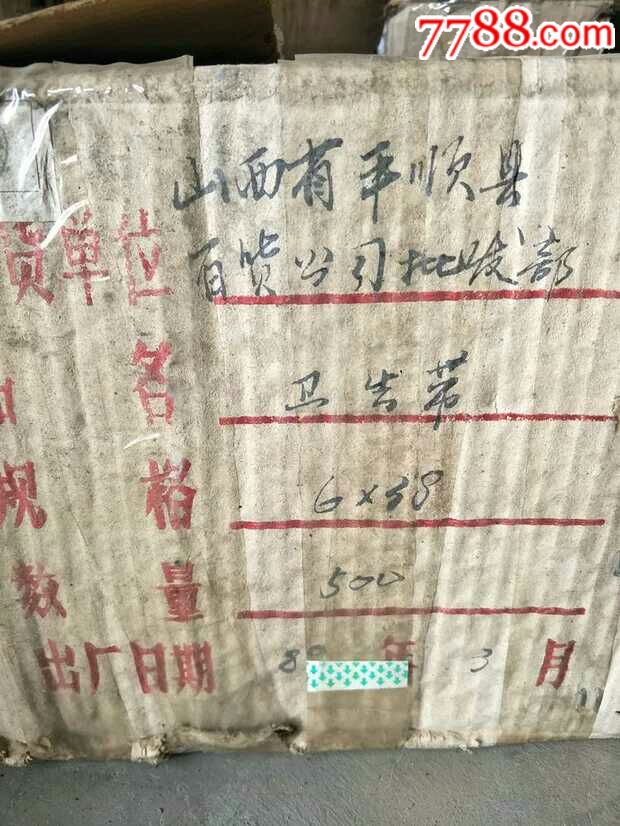 7788.com
山西省平顺县
货单位 百货公司批发部
名 卫生带
规格 6×38
数量 500
出厂日期 8 年 3 月